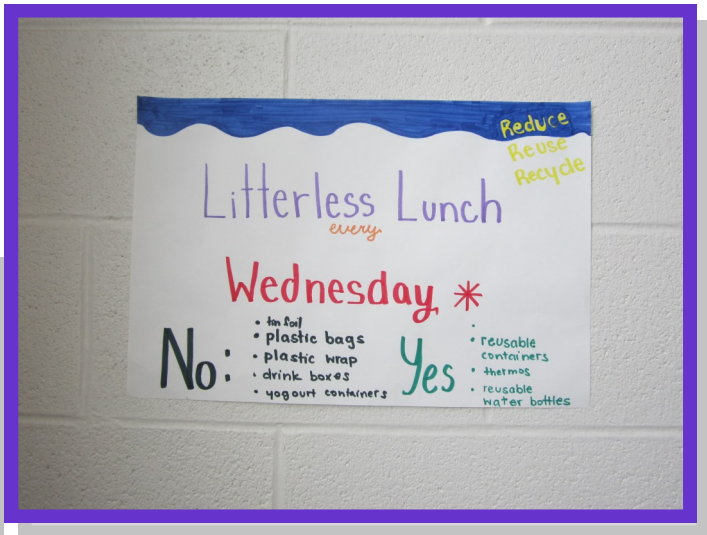 Reduce
Reuse
Recycle
Litterless Lunch
every
Wednesday *
No:
• tin foil
• plastic bags
• plastic wrap
• drink boxes
• yogourt containers
Yes
• reusable
containers
• thermos
• reusable
water bottles